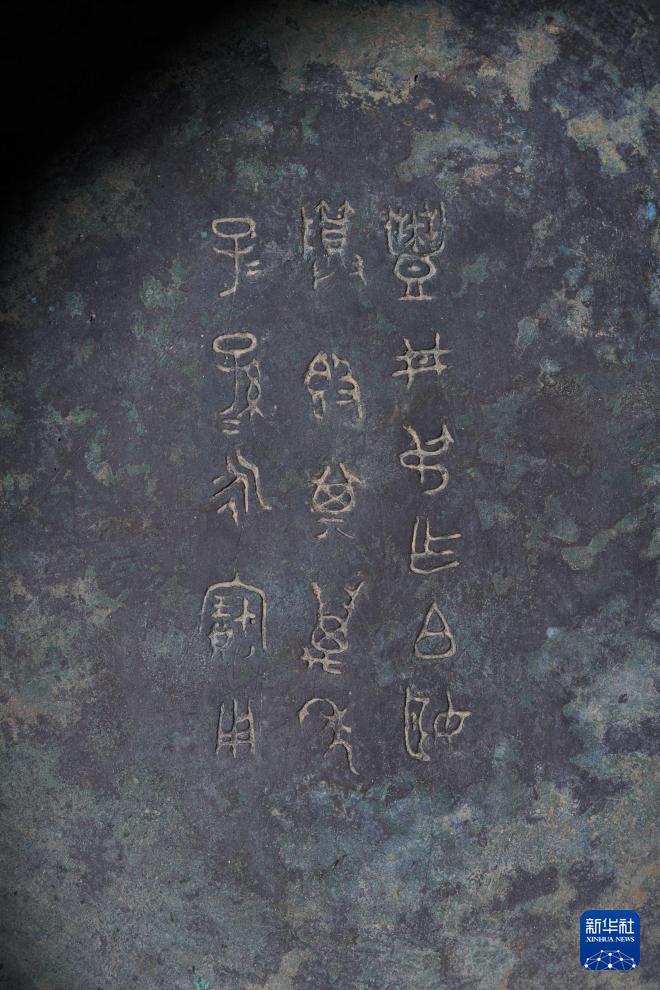 豐井叔乍白姬
尊𣪘其萬年
子＝孫＝永寶用
新华社
XINHUA NEWS